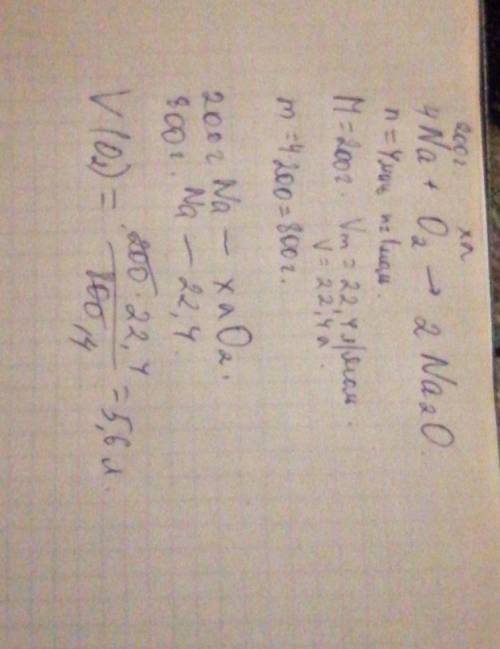 200г. xл
4Na + O₂ → 2 Na₂O.
n = 4моль n=1моль.
M = 200г. Vm = 22,4 л/моль.
V = 22,4л.
m = 4 200 = 800г.
200г Na — xл O₂.
800г. Na — 22,4.
V(O₂) = 200·22,4 / 800,4 = 5,6 л.